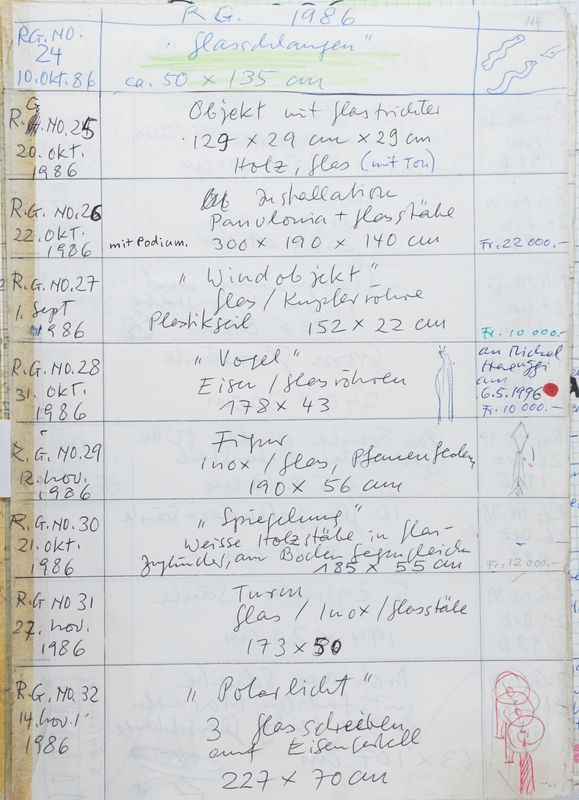 R.G. 1986
114
R.G.NO.
24
10.OKT.86
"Glasschlangen"
ca. 50 x 135 cm
R.G.NO.25
20.OKT.
1986
Objekt mit Glastrichter
129 x 29 cm x 29 cm
Holz, Glas (mit Ton)
R.G. NO.26
22.OKT.
1986
Installation
Panulonia + Glasstäbe
mit Podium. 300 x 190 x 140 cm
Fr. 22 000.-
R.G.NO.27
1. Sept
1986
"Windobjekt"
Glas / Kupferröhre
Plastikseil 152 x 22 cm
Fr. 10 000.-
R.G. NO.28
31. OKT.
1986
"Vogel"
Eisen / Glasröhren
178 x 43
an Michel
Haenggi
am
6.5.1996
Fr. 10 000.-
R.G.NO.29
12. Nov.
1986
Figur
Inox / Glas, Pfauenfedern
190 x 56 cm
R.G. NO.30
21. OKT.
1986
"Spiegelung"
Weisse Holzstäbe in Glas-
zylinder, am Boden gegengleich
185 x 55 cm
Fr. 12 000.-
R.G NO 31
27. Nov.
1986
Turm
Glas / Inox / Glasstäbe
173 x 50
R.G. NO.32
14. Nov.
1986
"Polarlicht"
3 Glasscheiben
auf Eisengestell
227 x 70 cm